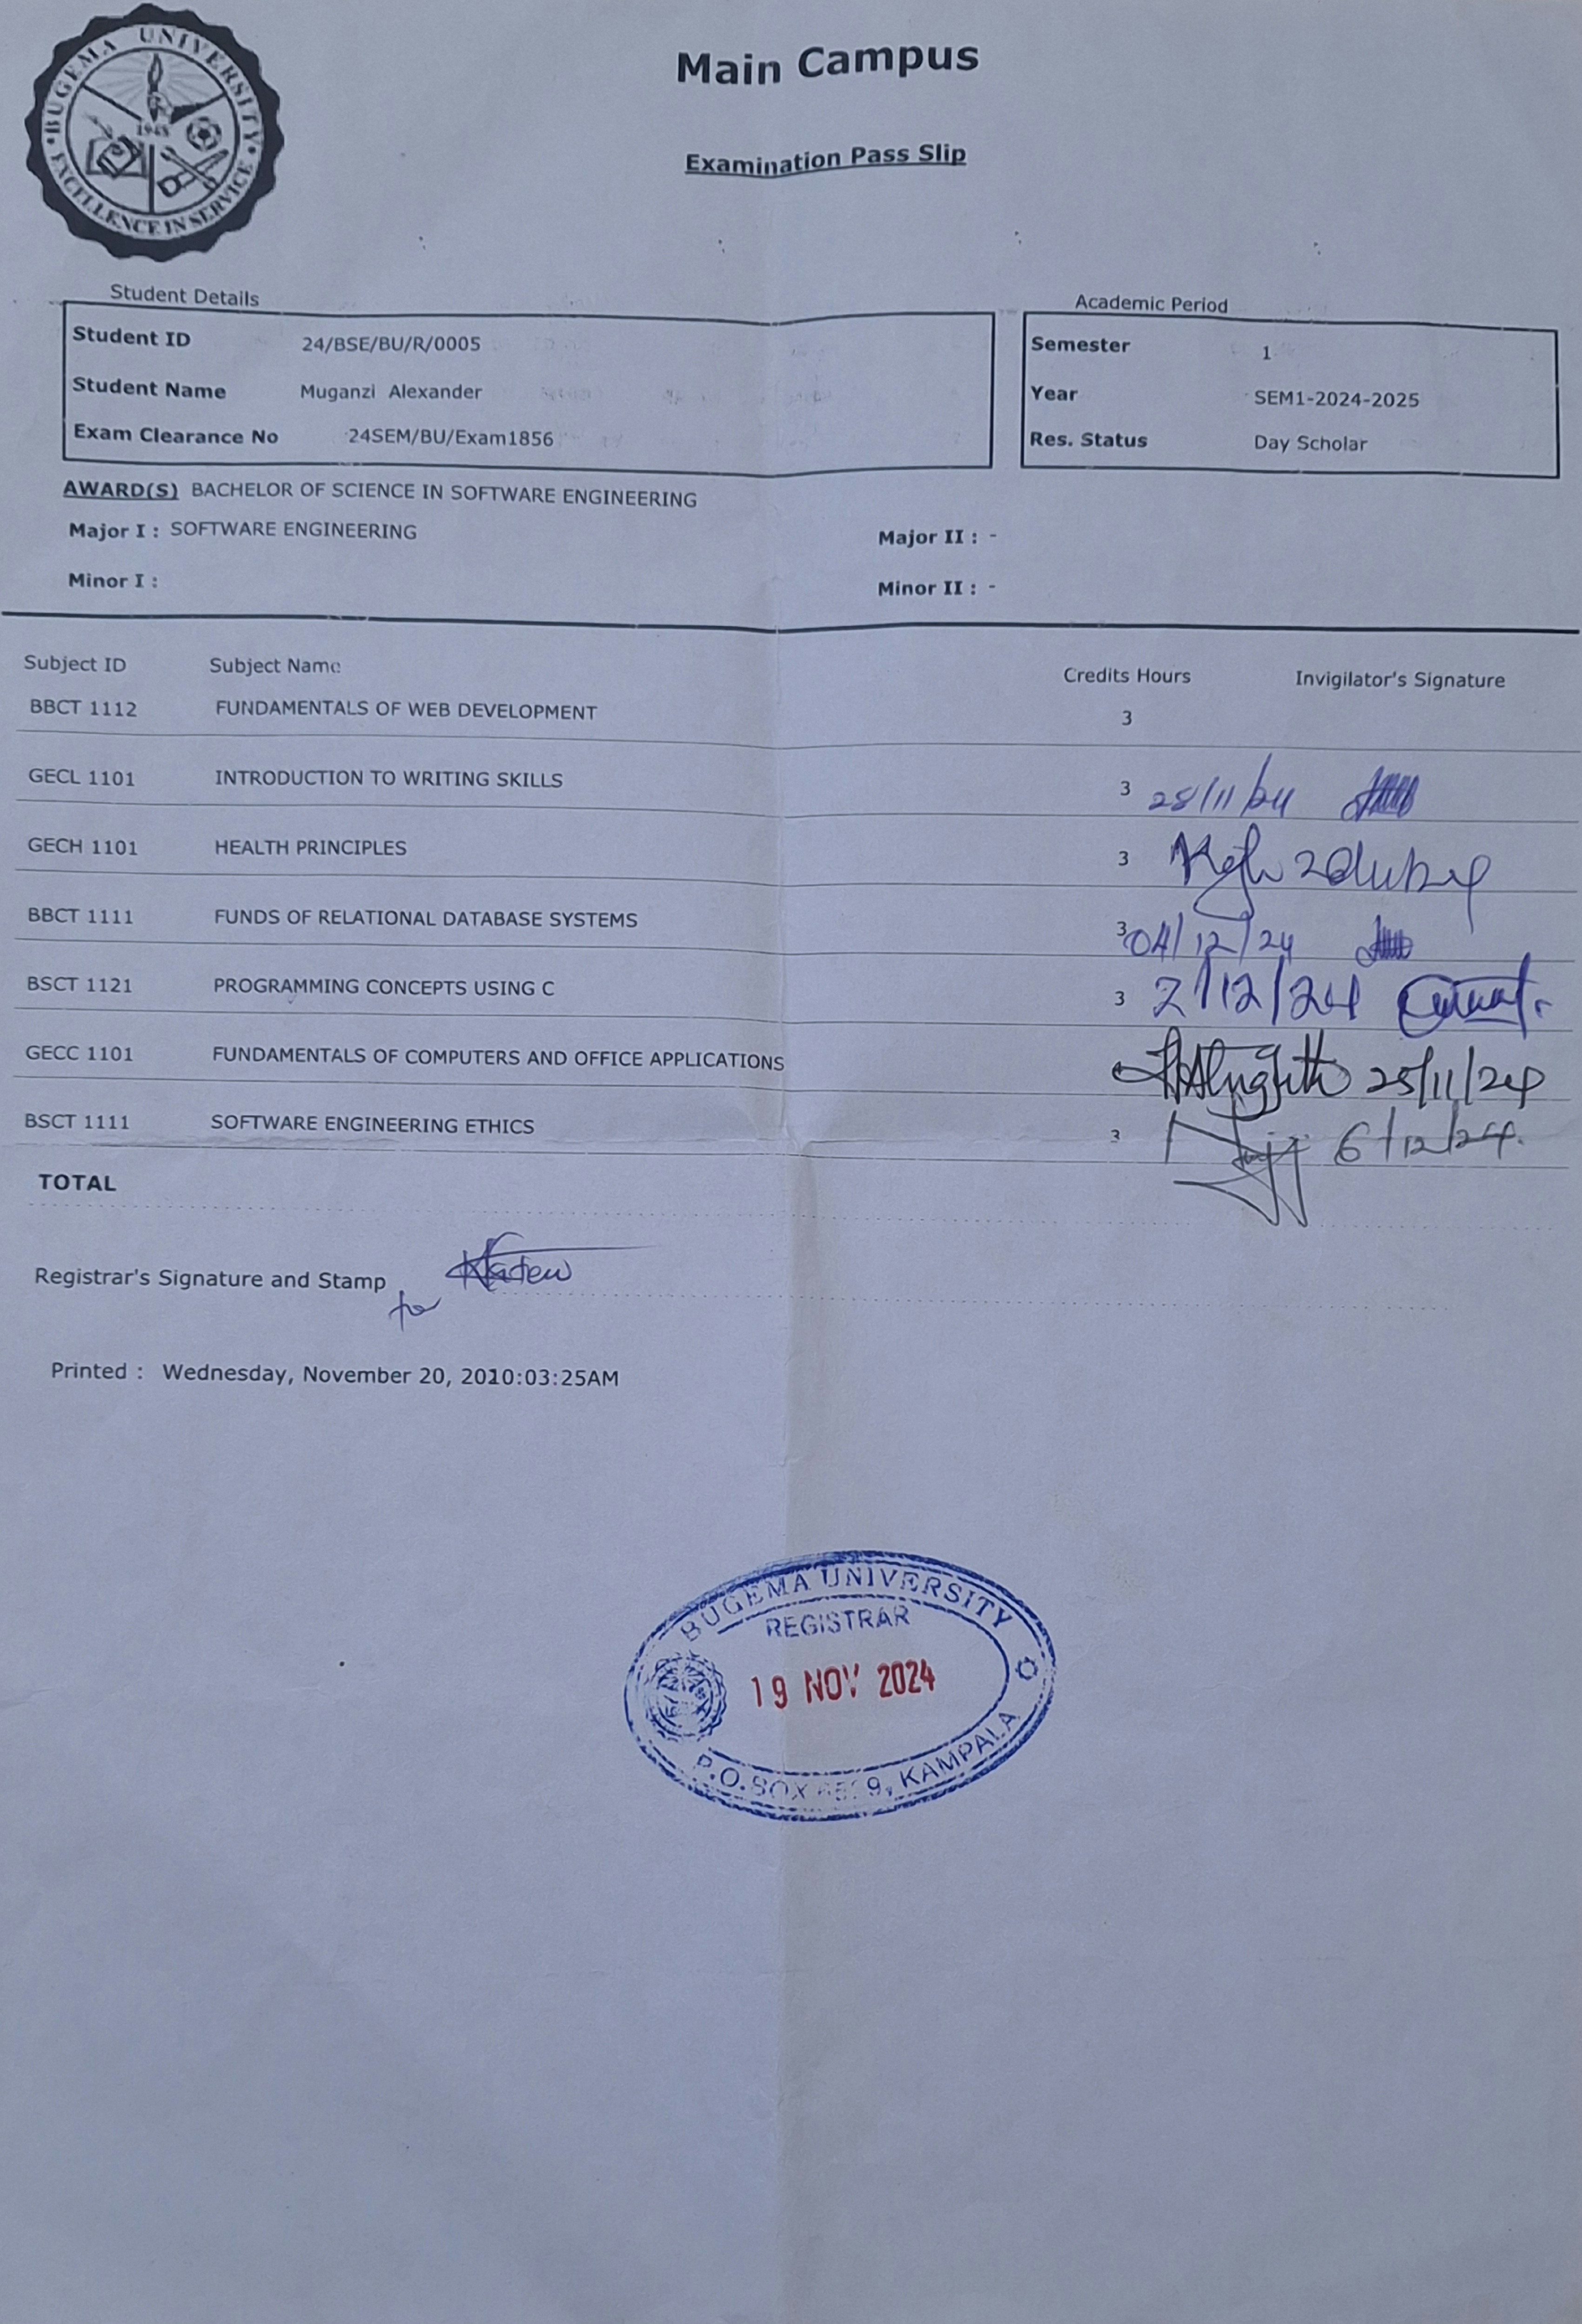 BUGEMA UNIVERSITY
1948
EXCELLENCE IN SERVICE
Main Campus
Examination Pass Slip
Student Details
Student ID 24/BSE/BU/R/0005
Student Name Muganzi Alexander
Exam Clearance No 24SEM/BU/Exam1856
Academic Period
Semester 1
Year SEM1-2024-2025
Res. Status Day Scholar
AWARD(S) BACHELOR OF SCIENCE IN SOFTWARE ENGINEERING
Major I : SOFTWARE ENGINEERING Major II : -
Minor I : Minor II : -
Subject ID Subject Name Credits Hours Invigilator's Signature
BBCT 1112 FUNDAMENTALS OF WEB DEVELOPMENT 3
GECL 1101 INTRODUCTION TO WRITING SKILLS 3 28/11/24
GECH 1101 HEALTH PRINCIPLES 3
BBCT 1111 FUNDS OF RELATIONAL DATABASE SYSTEMS 3 04/12/24
BSCT 1121 PROGRAMMING CONCEPTS USING C 3 2/12/24
GECC 1101 FUNDAMENTALS OF COMPUTERS AND OFFICE APPLICATIONS 25/11/24
BSCT 1111 SOFTWARE ENGINEERING ETHICS 3 6/12/24.
TOTAL
Registrar's Signature and Stamp
for
Printed : Wednesday, November 20, 2010:03:25AM
BUGEMA UNIVERSITY
REGISTRAR
19 NOV 2024
P.O.BOX 9, KAMPALA